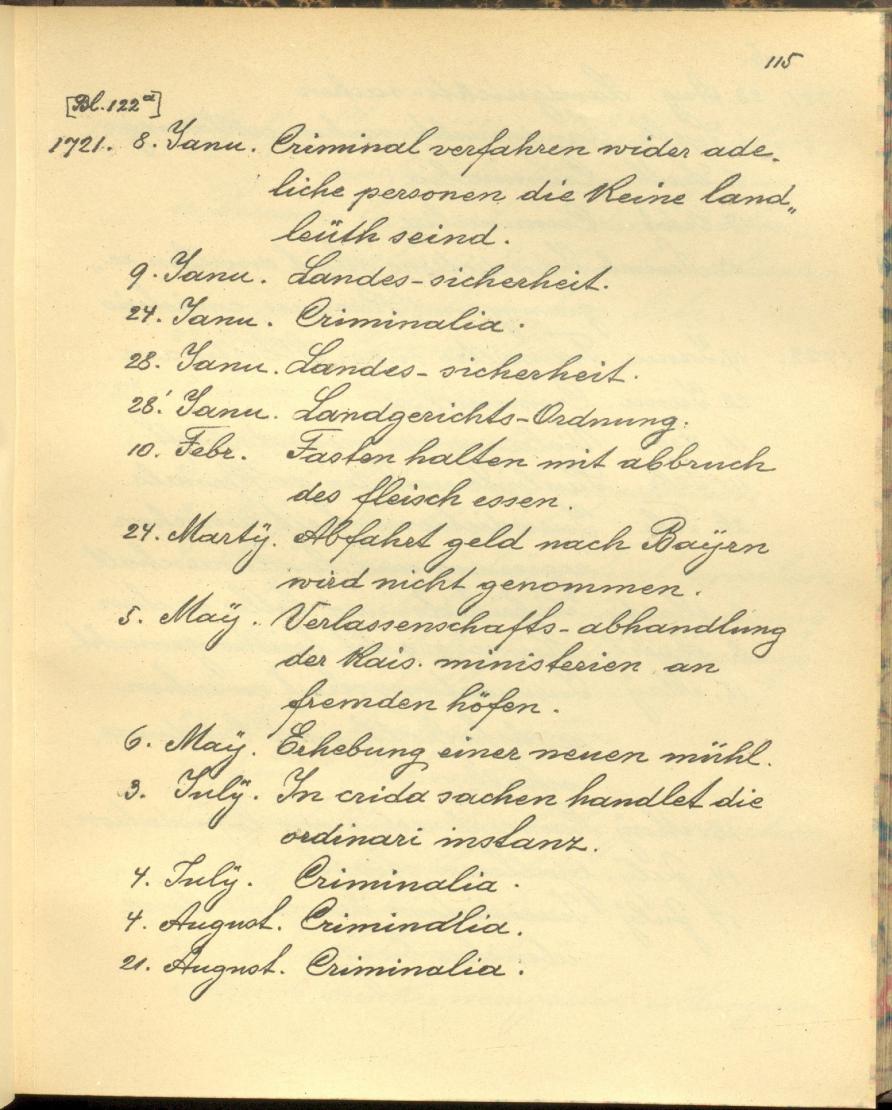 115
[Bl. 122a]
1721. 8. Ianu. Criminal verfahren wider ade-
liche personen, die keine land„
leüth seind.
9. Ianu. Landes-sicherheit.
24. Ianu. Criminalia.
28. Ianu. Landes-sicherheit.
28. Ianu. Landgerichts-Ordnung.
10. Febr. Fasten halten mit abbruch
des fleisch essen.
24. Martÿ. Abfahrt geld nach Baÿrn
wird nicht genommen.
5. Maÿ. Verlassenschafts-abhandlung
der kais. ministerien an
fremden höfen.
6. Maÿ. Erhebung einer neuen mühl.
3. Iulÿ. In crida sachen handlet die
ordinari instanz.
4. Iulÿ. Criminalia.
4. August. Criminalia.
21. August. Criminalia.